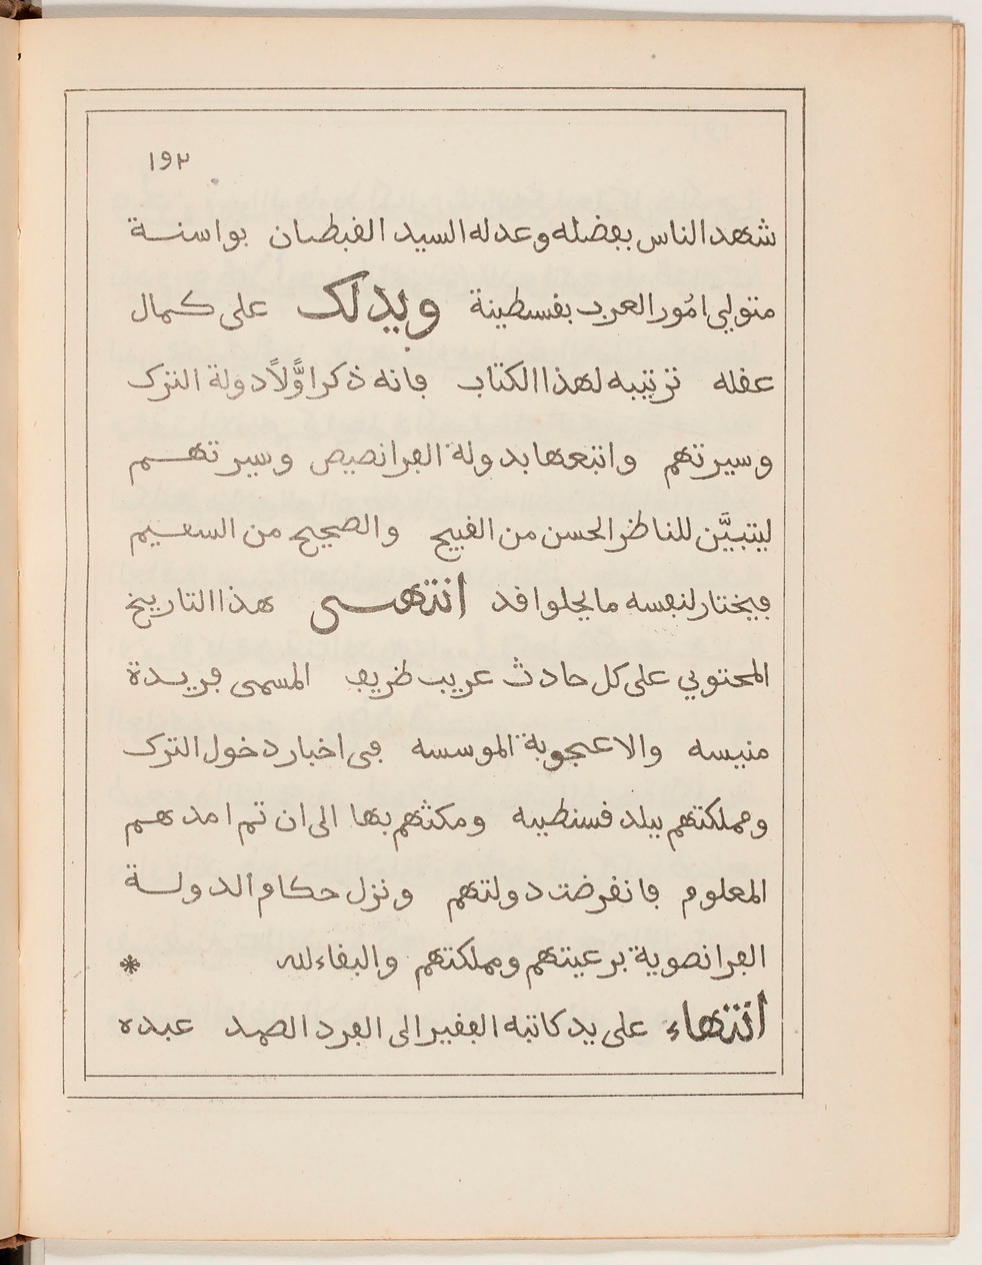 ١٩٢
شهد الناس بفضله وعدله السيد القبطان بواسنة
متولي امُور العرب بقسطينة ويدلك على كمال
عقله ترتيبه لهذا الكتاب فانه ذكر اوَّلاً دولة الترك
وسيرتهم واتبعها بدولة الفرانصيص وسيرتهم
ليتبيَّن للناظر الحسن من القبيح والصحيح من السقيم
فيختار لنفسه ما يحلوا قد انتهى هذا التاريخ
المحتوي على كل حادث غريب ظريف المسمى فريدة
منيسه والاعجوبة الموسسه في اخبار دخول الترك
ومملكتهم ببلد قسنطينه ومكثهم بها الى ان تم امدهم
المعلوم فانقرضت دولتهم ونزل حكام الدولة
الفرانصوية برعيتهم ومملكتهم والبقاء لله *
انتهاء على يد كاتبه الفقير الى الفرد الصمد عبده